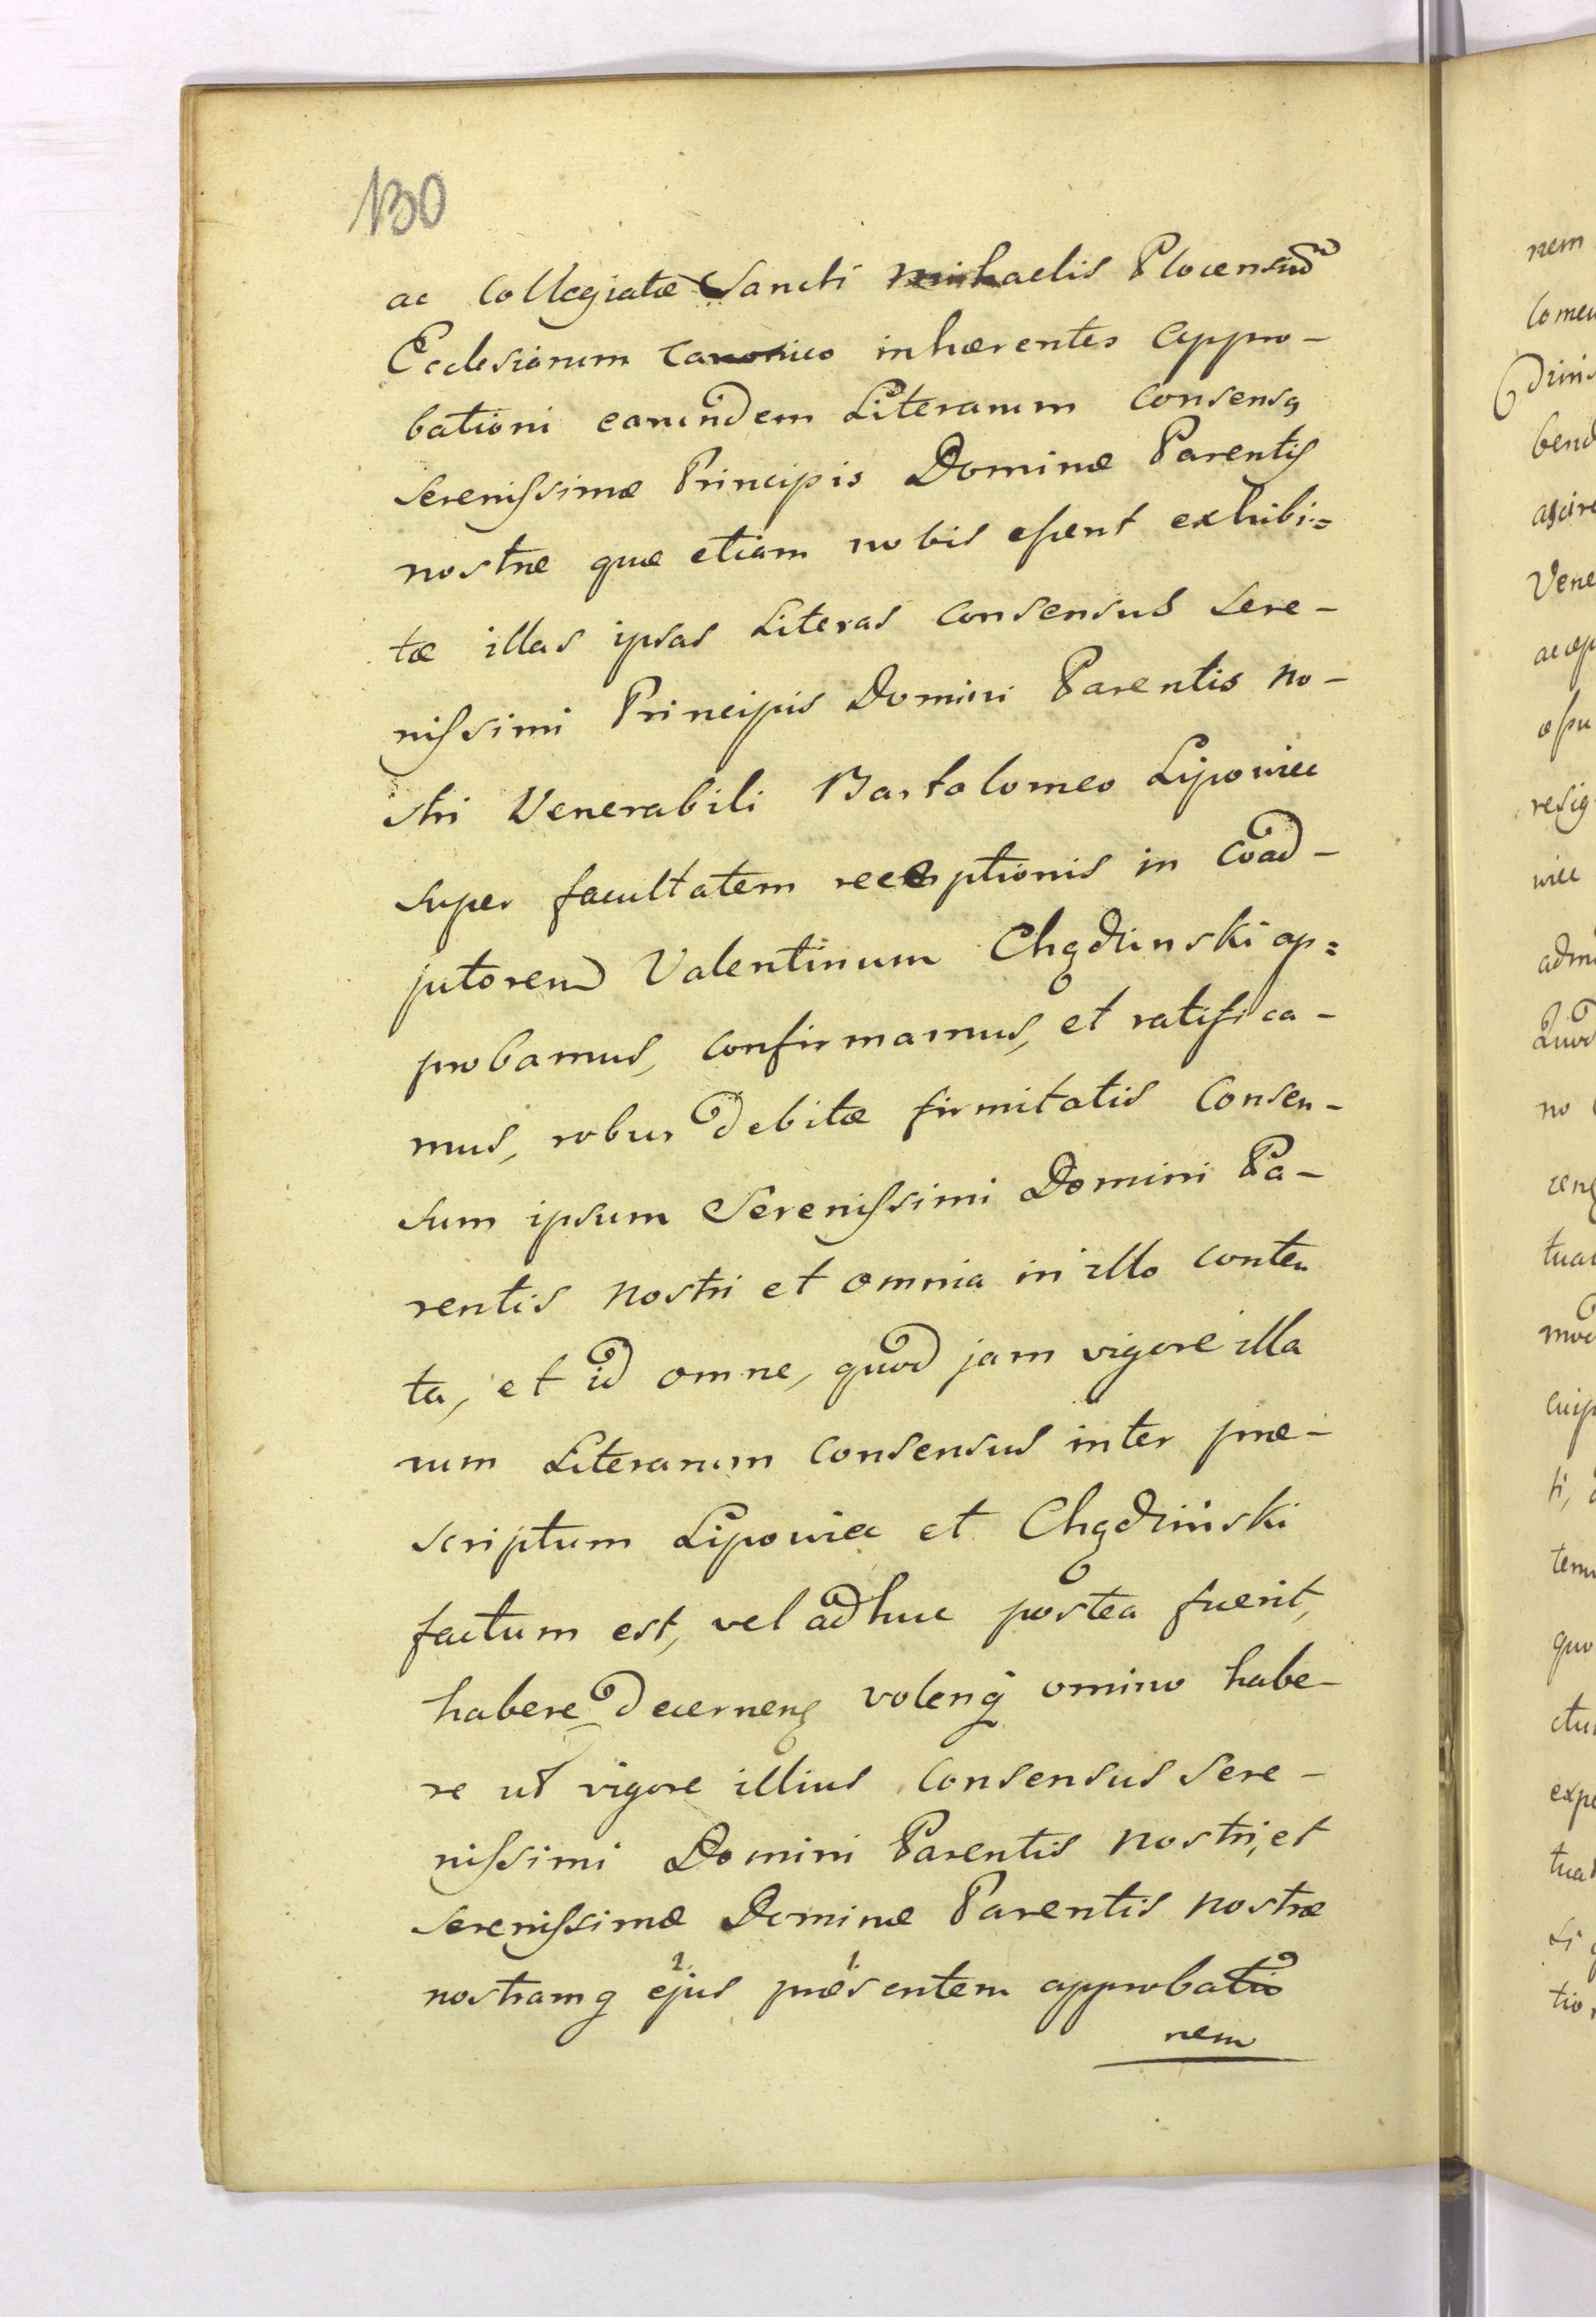 130
ac Collegiatæ Sancti Michaelis Plocensiū
Ecclesiarum Canonico inhærentes appro-
bationi earundem Literarum Consensq
Serenissimæ Principis Dominæ Parentis
nostræ quæ etiam nobis essent exhibi=
tæ illas ipsas Literas Consensus Sere-
nissimi Principis Domini Parentis no-
stri Venerabili Bartolomeo Lipowiec
super facultatem receptionis in Coad-
jutorem Valentinum Chądzinski ap=
probamus, confirmamus, et ratifica-
mus, robur debitæ firmitatis Consen-
sum ipsum Serenissimi Domini Pa-
rentis nostri et omnia in illo conten
ta, et id omne, quod jam vigore illa
rum Literarum Consensus inter præ-
scriptum Lipowiec et Chądzinski
factum est, vel adhuc postea fuerit,
habere decernenq volenq omino habe-
re ut vigore illius Consensus Sere-
nissimi Domini Parentis nostri, et
Serenissimæ Dominæ Parentis nostræ
nostramq ejus præsentem approbatio
nem
nem
Comeu
bend
Vene
resig
wiec
no
tuar
tem
quo
ctu
expe
tuar
tio